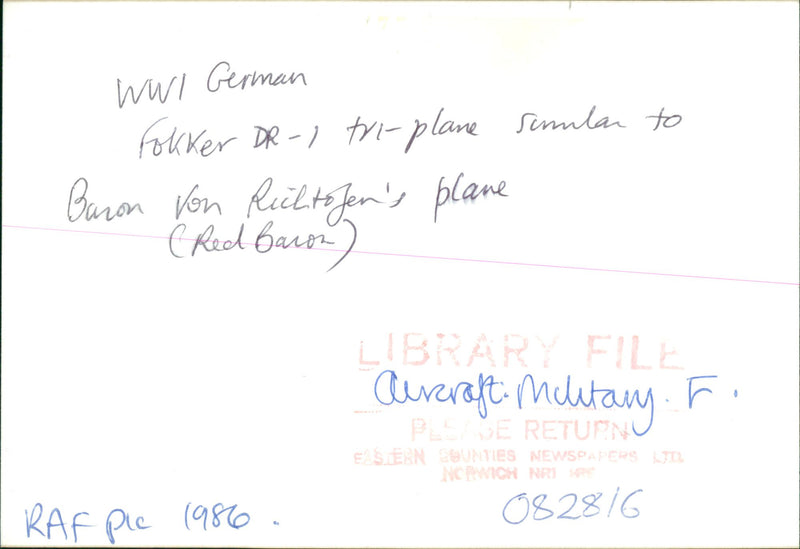 WW1 German
Fokker DR-1 tri-plane similar to
Baron Von Richtofen's plane
(Red Baron)
LIBRARY FILE
Aircraft. Military. F.
PLEASE RETURN
EASTERN COUNTIES NEWSPAPERS LTD.
NORWICH NR1
082816
RAF pic 1986.